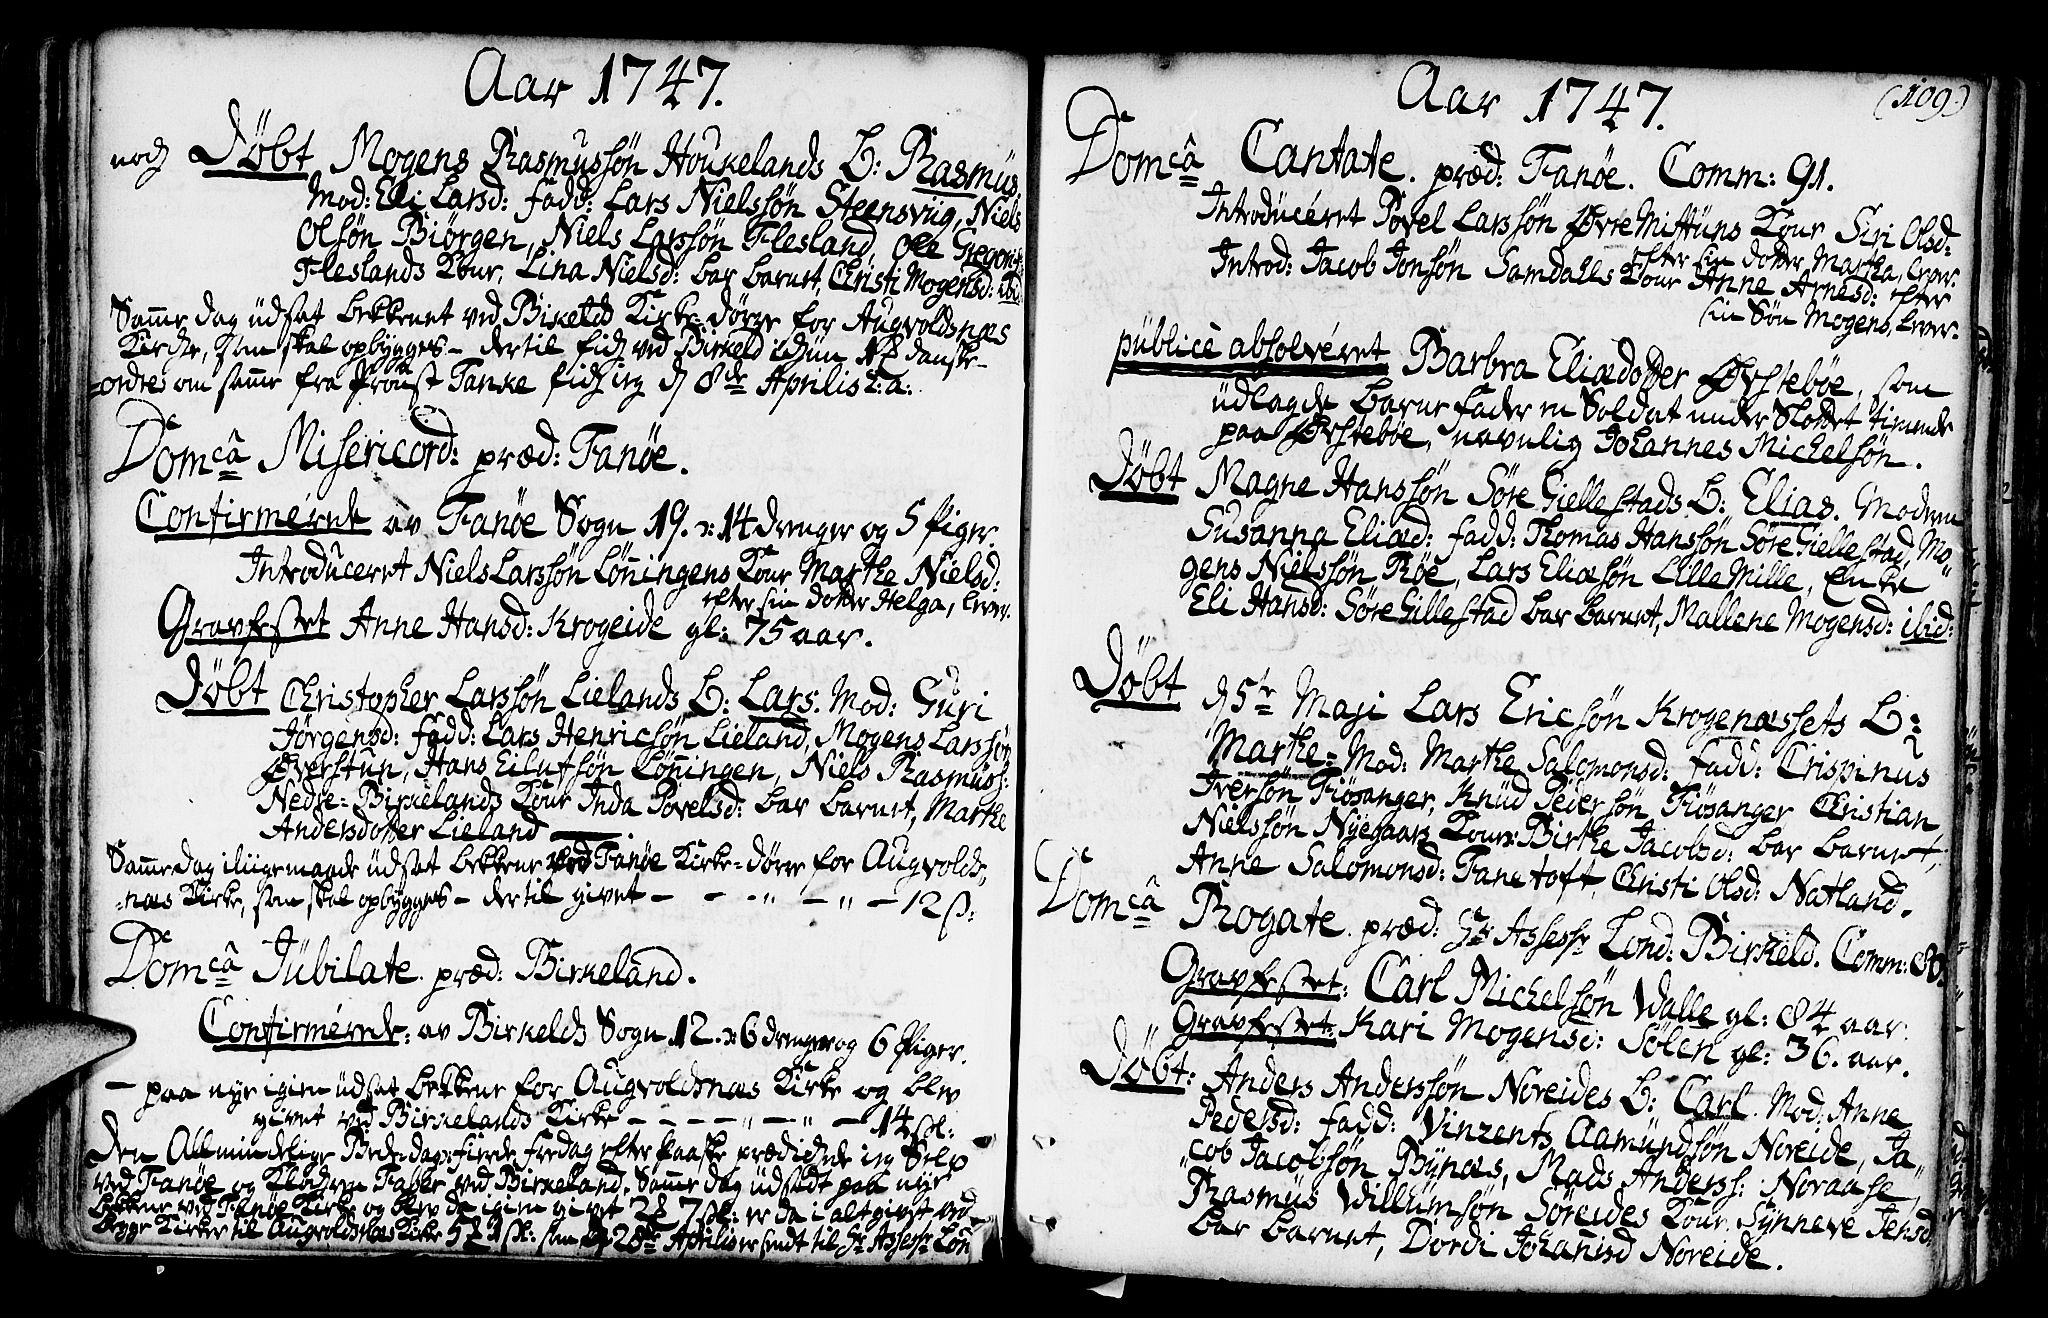 Aar 1747.
noch Döbt Mogens Rasmussön Houkelands B: Rasmus.
Mod: Eli Larsd: fadd: Lars Nielssön Steensviig, Niels
Olsön Biörgen, Niels Larssön Flesland, Ole Gregoriis:
Fleslands Kone, Lina Nielsd: bar barnet, Christi Mogensd: ibid:
Samme dag udsat bekkenet ved Birkeld Kirke-dörre for Augvoldsnæs
Kirche, som skal opbygges - dertil fich ved Birkeld ichun danske-
ordre om samme fra Provst Tanke fich ieg d 8de Aprilis t: a:
Domcâ Misericord: præd: Fanöe.
Confirmérede av Fanöe Sogn 19. ɔ: 14 drenger og 5 Piger.
Introduceret Niels Larssön Löningens Kone Marthe Nielsd:
efter sin dotter Helga, lever.
Gravfestet Anne Hansd: Krogeide gl: 75 aar.
Döbt Christopher Larssön Lielands B: Lars. Mod: Guri
Jörgensd: fadd: Lars Henricsön Lieland, Mogens Larssön
Øverstun, Hans Eilufsön Löningen, Niels Rasmuss:
Nedre-Birkelands Kone Inda Povelsd: bar barnet, Marthe
Andersdotter Lieland
Samme dag iligemaade udsat bekkene ved Fanöe Kirke-dörre for Augvolds,
-næs Kirke, som skal opbygges - dertil givet - - - " - " - 12 ß:
Domcâ Jubilate. præd: Birkeland.
Confirmérede: av Birkelds Sogn 12. ɔ: 6 drenge og 6 Piger.
- paa nye igien udsat bekkene for Augvoldsnæs Kirke og blev
givet ved Birkelands Kirke - - - - " - " - 14 ßl:
Den Allmindelige Bededag: fierde fredag efter paaske prædichede ieg Selv
ved Fanöe og Klochern Faber ved Birkeland. Samme dag udsadt paa nye
bekkene ved Fanöe Kirke og blev da igien givet 2 7 ßl: er da i alt givet ved
begge Kirker til Augvoldsnæs Kirke 5 1 ßl: som d 28de Aprilis er sendt til Hr Assessr Lon
Aar 1747.
(109)
Domcâ Cantate. præd: Fanöe. Comm: 91.
Introducéret Povel Larssön Øvre Mittuns Kone Siri Olsd:
efter sin dotter Martha, lever.
Introd: Jacob Jonsön Samdahls Kone Anne Arnesd: efter
sin Sön Mogens, lever.
publicè absolvéret Barbra Eliædotter Øvstebøe, som
udlagde barne fader en Soldat under Slottet tienende
paa Øvstebøe, navnlig Johannes Michelsön.
Döbt Magne Hanssön Söre Giellestads B: Elias. Moderen
Susanna Eliæd: fadd: Thomas Hanssön Söre Giellestad, Mo"
gens Nielssön Röe, Lars Eliæsön Lille Mille, Enke
Eli Hansd: Söre Gillestad bar barnet, Mallene Mogensd: ibid:
Döbt d 5te Maji Lars Ericsön Krogenæssets B:
Marthe: Mod: Marthe Salomonsd: fadd: Crispinus
Iversön Fiösanger, Knud Pedersön Fiösanger Christian
Nielssön Nyegaars Kone: Birthe Jacobsd: bar barnet,
Anne Salomonsd: Fanetoft, Christi Olsd: Natland.
Domcâ Rogate. præd: Hr Assessr Lond: Birkeld. Comm: 80.
Gravfestet: Carl Michelsön Walle gl: 84 aar.
Gravfestet: Kari Mogensd: Sölen gl: 36. aar.
Döbt: Anders Anderssön Noreides B: Carl. Mod: Anne
Pedersd: fadd: Vinzents Aamundsön Noreide, Ja"
"cob Jacobsön Bynæs, Mads Anderss: Noraase,
Rasmus Willumsön Söreides Kone, Synneve Jensd:
bar barnet, Dordi Johannisd Noreide.